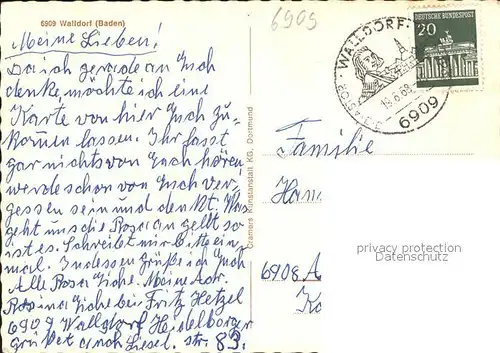 6909 Walldorf (Baden)
6909
Meine Lieben!
Da ich gerade an Euch
denke möchte ich eine
Karte von hier Euch zu-
kommen lassen. Ihr lasst
gar nichts von Euch hören
werde schon von Euch ver-
gessen sein und den
geht uns die Rosa an gellt so
ist es. Schreibt mir bitte ein
mal. Indessen grüße ich Euch
Alle Rosa Eiche. Meine Adr.
Rosina Eiche bei Fritz Hetzel
6909 Walldorf Heidelberger
Grüßet auch Liesel. str. 83.
Cramers Kunstanstalt KG, Dortmund
WALLDORF
18.6.68
6909
DEUTSCHE BUNDESPOST
20
Familie
6908
privacy protection
watermark